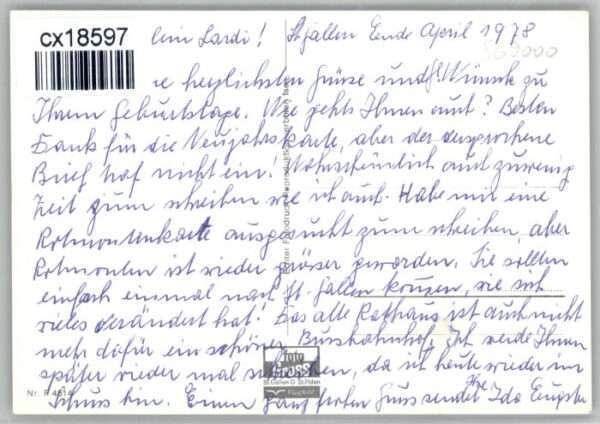 cx18597
lein Lardi! St. Gallen Ende April 1978
herzlichsten Grüsse und Wünsche zu
Ihrem Geburtstage. Wie gehts Ihnen amt? Besten
Dank für die Neujahrskarte, aber der versprochene
Brief traf nicht ein! Wahrscheinlich auch zuwenig
Zeit zum schreiben wie ich auch. Habe mir eine
Rotmontenkarte ausgesucht zum schreiben, aber
Rotmonten ist wieder grösser geworden. Sie sollten
einfach einmal nach St. Gallen kommen, wie sich
vieles verändert hat! Das alte Rathaus ist auch nicht
mehr dafür ein schöner Busbahnhof. Ich werde Ihnen
später wieder mal schreiben, da ist heute wieder im
Schuss bin. Einen ganz frohen Gruss sendet Ihre Ida
foto
GROSS
St. Gallen
Nr. R 4614